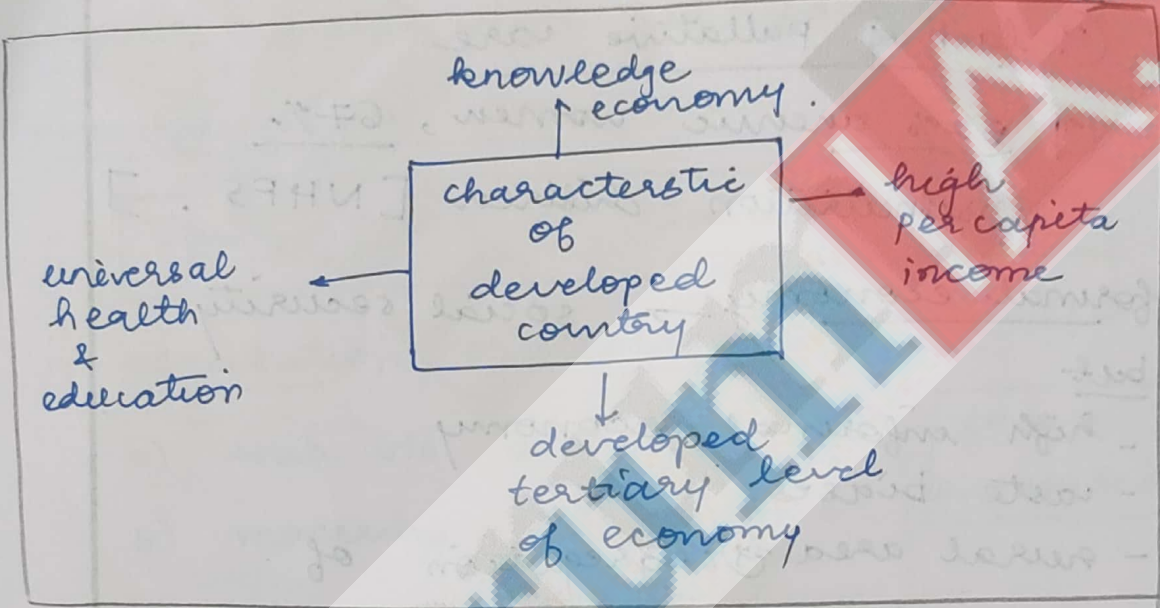 knowledge
economy.
characterstic
of
developed
country
high
per capita
income
universal
health
&
education
developed
tertiary level
of economy
rum IA.